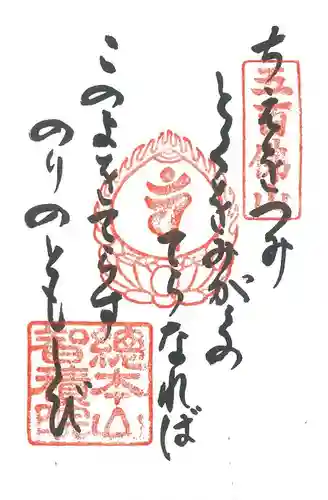 ちえをつみ
とくをみがくの
てらなれば
このよをてらす
のりのともしび
五百佛山
總本山
智積院